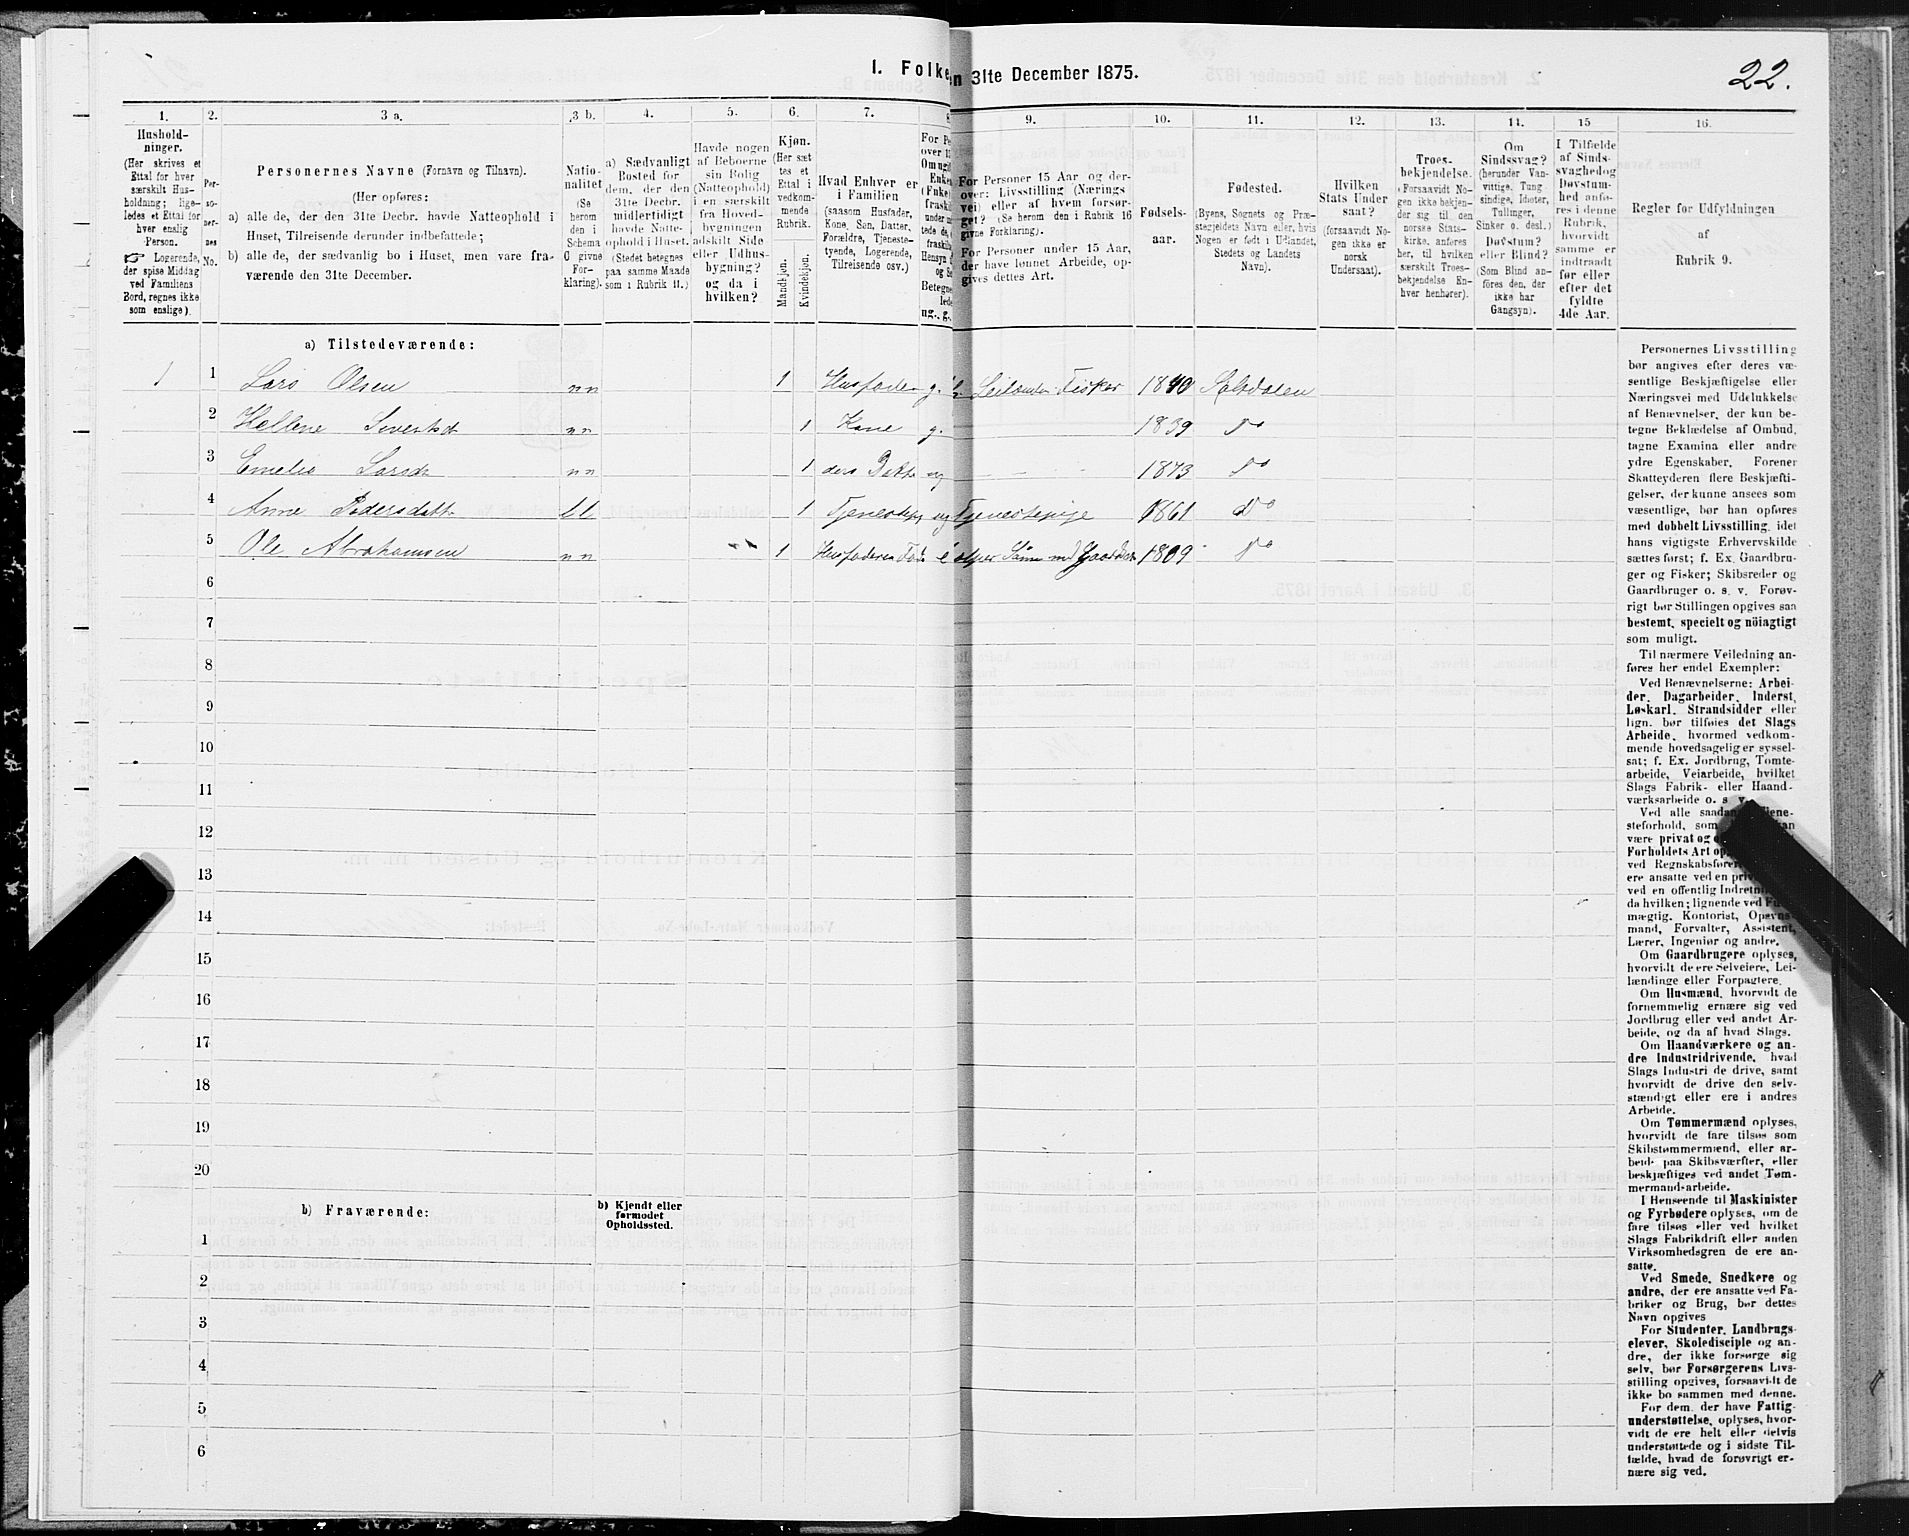 1. Folke
n 31te December 1875.
22.
1. 2. 3 a. 3 b. 4. 5. 6. 7. 8. 9. 10. 11. 12. 13. 14. 15 16.
Hushold-
ninger.
(Her skrives et
Ettal for hver
særskilt Hus-
holdning; lige-
ledes et Ettal for
hver enslig
Person.
☞ Logerende,
der spise Middag
ved Familiens
Bord, regnes ikke
som enslige).
Per-
so-
ner-
nes
No.
Personernes Navne (Fornavn og Tilnavn).
(Her opføres:
a) alle de, der den 31te Decbr. havde Natteophold i
Huset, Tilreisende derunder indbefattede;
b) alle de, der sædvanlig bo i Huset, men vare fra-
værende den 31te December.
Natio-
nalitet
(Se
herom
den i
Schema
C givne
For-
klaring).
a) Sædvanligt
Bosted for
dem, der den
31te Decbr.
midlertidigt
havde Natte-
ophold i Huset.
(Stedet betegnes
paa samme Maade
som i Rubrik 11.)
Havde nogen
af Beboerne
sin Bolig
(Natteophold)
i en særskilt
fra Hoved-
bygningen
adskilt Side
eller Udhus-
bygning?
og da i
hvilken?
Kjøn.
(Her sæt
tes et
Ettal i
vedkom-
mende
Rubrik.
Mandkjøn.
Kvindekjøn.
Hvad Enhver er
i Familien
(saasom Husfader,
Kone, Søn, Datter,
Forældre, Tjeneste-
tyende, Logerende,
Tilreisende osv.)
For Pe
over 1
Om ugif
Enke
(Enke
fraskil
under n
tede de,
fraskila
Hensyn
og Se
Betegne
lede
ug., g.,
For Personer 15 Aar og der-
over: Livsstilling (Nærings
vei) eller af hvem forsør-
get? (Se herom den i Rubrik 16
givne Forklaring).
For Personer under 15 Aar,
der have lønnet Arbeide, op-
gives dettes Art.
Fødsels-
aar.
Fødested.
(Byens, Sognets og Præ-
stegjeldets Navn eller, hvis
Nogen er født i Udlandet,
Stedets og Landets
Navn).
Hvilken
Stats Under
saat?
(forsaavidt No-
gen ikke er
norsk
Undersaat).
Troes-
bekjendelse.
(Forsaavidt No-
gen ikke bekjen-
der sig til den
norske Stats-
kirke, anføres
her, til hvilken
særskilt Troes-
bekjendelse En-
hver henhører).
Om
Sindssvag?
(herunder Van-
vittige, Tung
sindige, Idioter,
Tullinger,
Sinker o. desl.)
Døvstum?
eller Blind?
(Som Blind an-
føres den, der
ikke har
Gangsyn).
I Tilfælde
af Sinds-
svaghed og
Døvstum-
hed anfø-
res i denne
Rubrik,
hvorvidt
samme er
indtraadt
før eller
efter det
fyldte
4de Aar.
Regler for Udfyldningen
af
Rubrik 9.
a) Tilstedeværende:
1 1 Lars Olsen nn 1 Husfader g. Leilænd. Fisker 1840 Saltdalen
2 Hellene Sivertsd nn 1 Kone g. 1839 Do
3 Emelie Larsd nn 1 ders Datt ug 1873 Do
4 Anne Pedersdatt ll 1 Tjenestep ug Tjenestepige 1861 Do
5 Ole Abrahamsen nn 1 Husfaderen Fad 1809 Do
6
7
8
9
10
11
12
13
14
15
16
17
18
19
20
b) Fraværende:
b) Kjendt eller
formodet
Opholdssted.
1
2
3
4
5
6
Personernes Livsstilling
bør angives efter deres væ-
sentlige Beskjæftigelse eller
Næringsvei med Udelukkelse
af Benævnelser, der kun be-
tegne Beklædelse af Ombud,
tagne Examina eller andre
ydre Egenskaber. Forener
Skatteyderen flere Beskjæfti-
gelser, der kunne ansees som
væsentlige, bør han opføres
med dobbelt Livsstilling, idet
hans vigtigste Erhvervskilde
sættes først; f. Ex. Gaardbru-
ger og Fisker; Skibsreder og
Gaardbruger o. s. v. Forøv-
rigt bør Stillingen opgives saa
bestemt, specielt og nöiagtigt
som muligt.
Til nærmere Veiledning an-
føres her endel Exempler:
Ved Benævnelserne: Arbei-
der, Dagarbeider, Inderst,
Løskarl, Strandsidder eller
lign. bør tilføies det Slags
Arbeide, hvormed vedkom-
mende hovedsagelig er syssel-
sat; f. Ex. Jordbrug, Tomte-
arbeide, Veiarbeide, hvilket
Slags Fabrik- eller Haand-
værksarbeide o. s. v.
Ved alle saadan
steforhold, som
være privat og
Forholdets Art op
ved Regnskabsfører
ere ansatte ved en priv
ved en offentlig Indretn
da hvilken; lignende ved Fu
mægtig, Kontorist, Opsyns-
mand, Forvalter, Assistent,
Lærer, Ingeniør og andre.
Om Gaardbrugere oplyses,
hvorvidt de ere Selveiere, Lei-
lændinge eller Forpagtere.
Om Husmænd, hvorvidt de
fornemmelig ernære sig ved
Jordbrug eller ved andet Ar-
beide, og da af hvad Slags.
Om Haandværkere og an-
dre Industridrivende, hvad
Slags Industri de drive, samt
hvorvidt de drive den selv-
stændigt eller ere i andres
Arbeide.
Om Tømmermænd oplyses,
hvorvidt de fare tilsøs som
Skibstømmermænd, eller ar-
beide paa Skibsværfter, eller
beskjæftiges ved andet Tøm-
mermandsarbeide.
I Henseende til Maskinister
og Fyrbødere oplyses, om de
fare tilsøs eller ved hvilket
Slags Fabrikdrift eller anden
Virksomhedsgren de ere an-
satte.
Ved Smede, Snedkere og
andre, der ere ansatte ved Fa-
briker og Brug, bør dettes
Navn opgives
For Studenter, Landbrugs-
elever, Skoledisciple og an-
dre, der ikke forsørge sig
selv, bør Forsørgerens Livs-
stilling opgives, forsaavidt de
ikke bo sammen med denne.
For dem, der have Fattig-
understøttelse, oplyses, hvor-
vidt de ere helt eller delvis
understøttede og i sidste Til-
fælde, hvad de forøvrigt er-
nære sig ved.